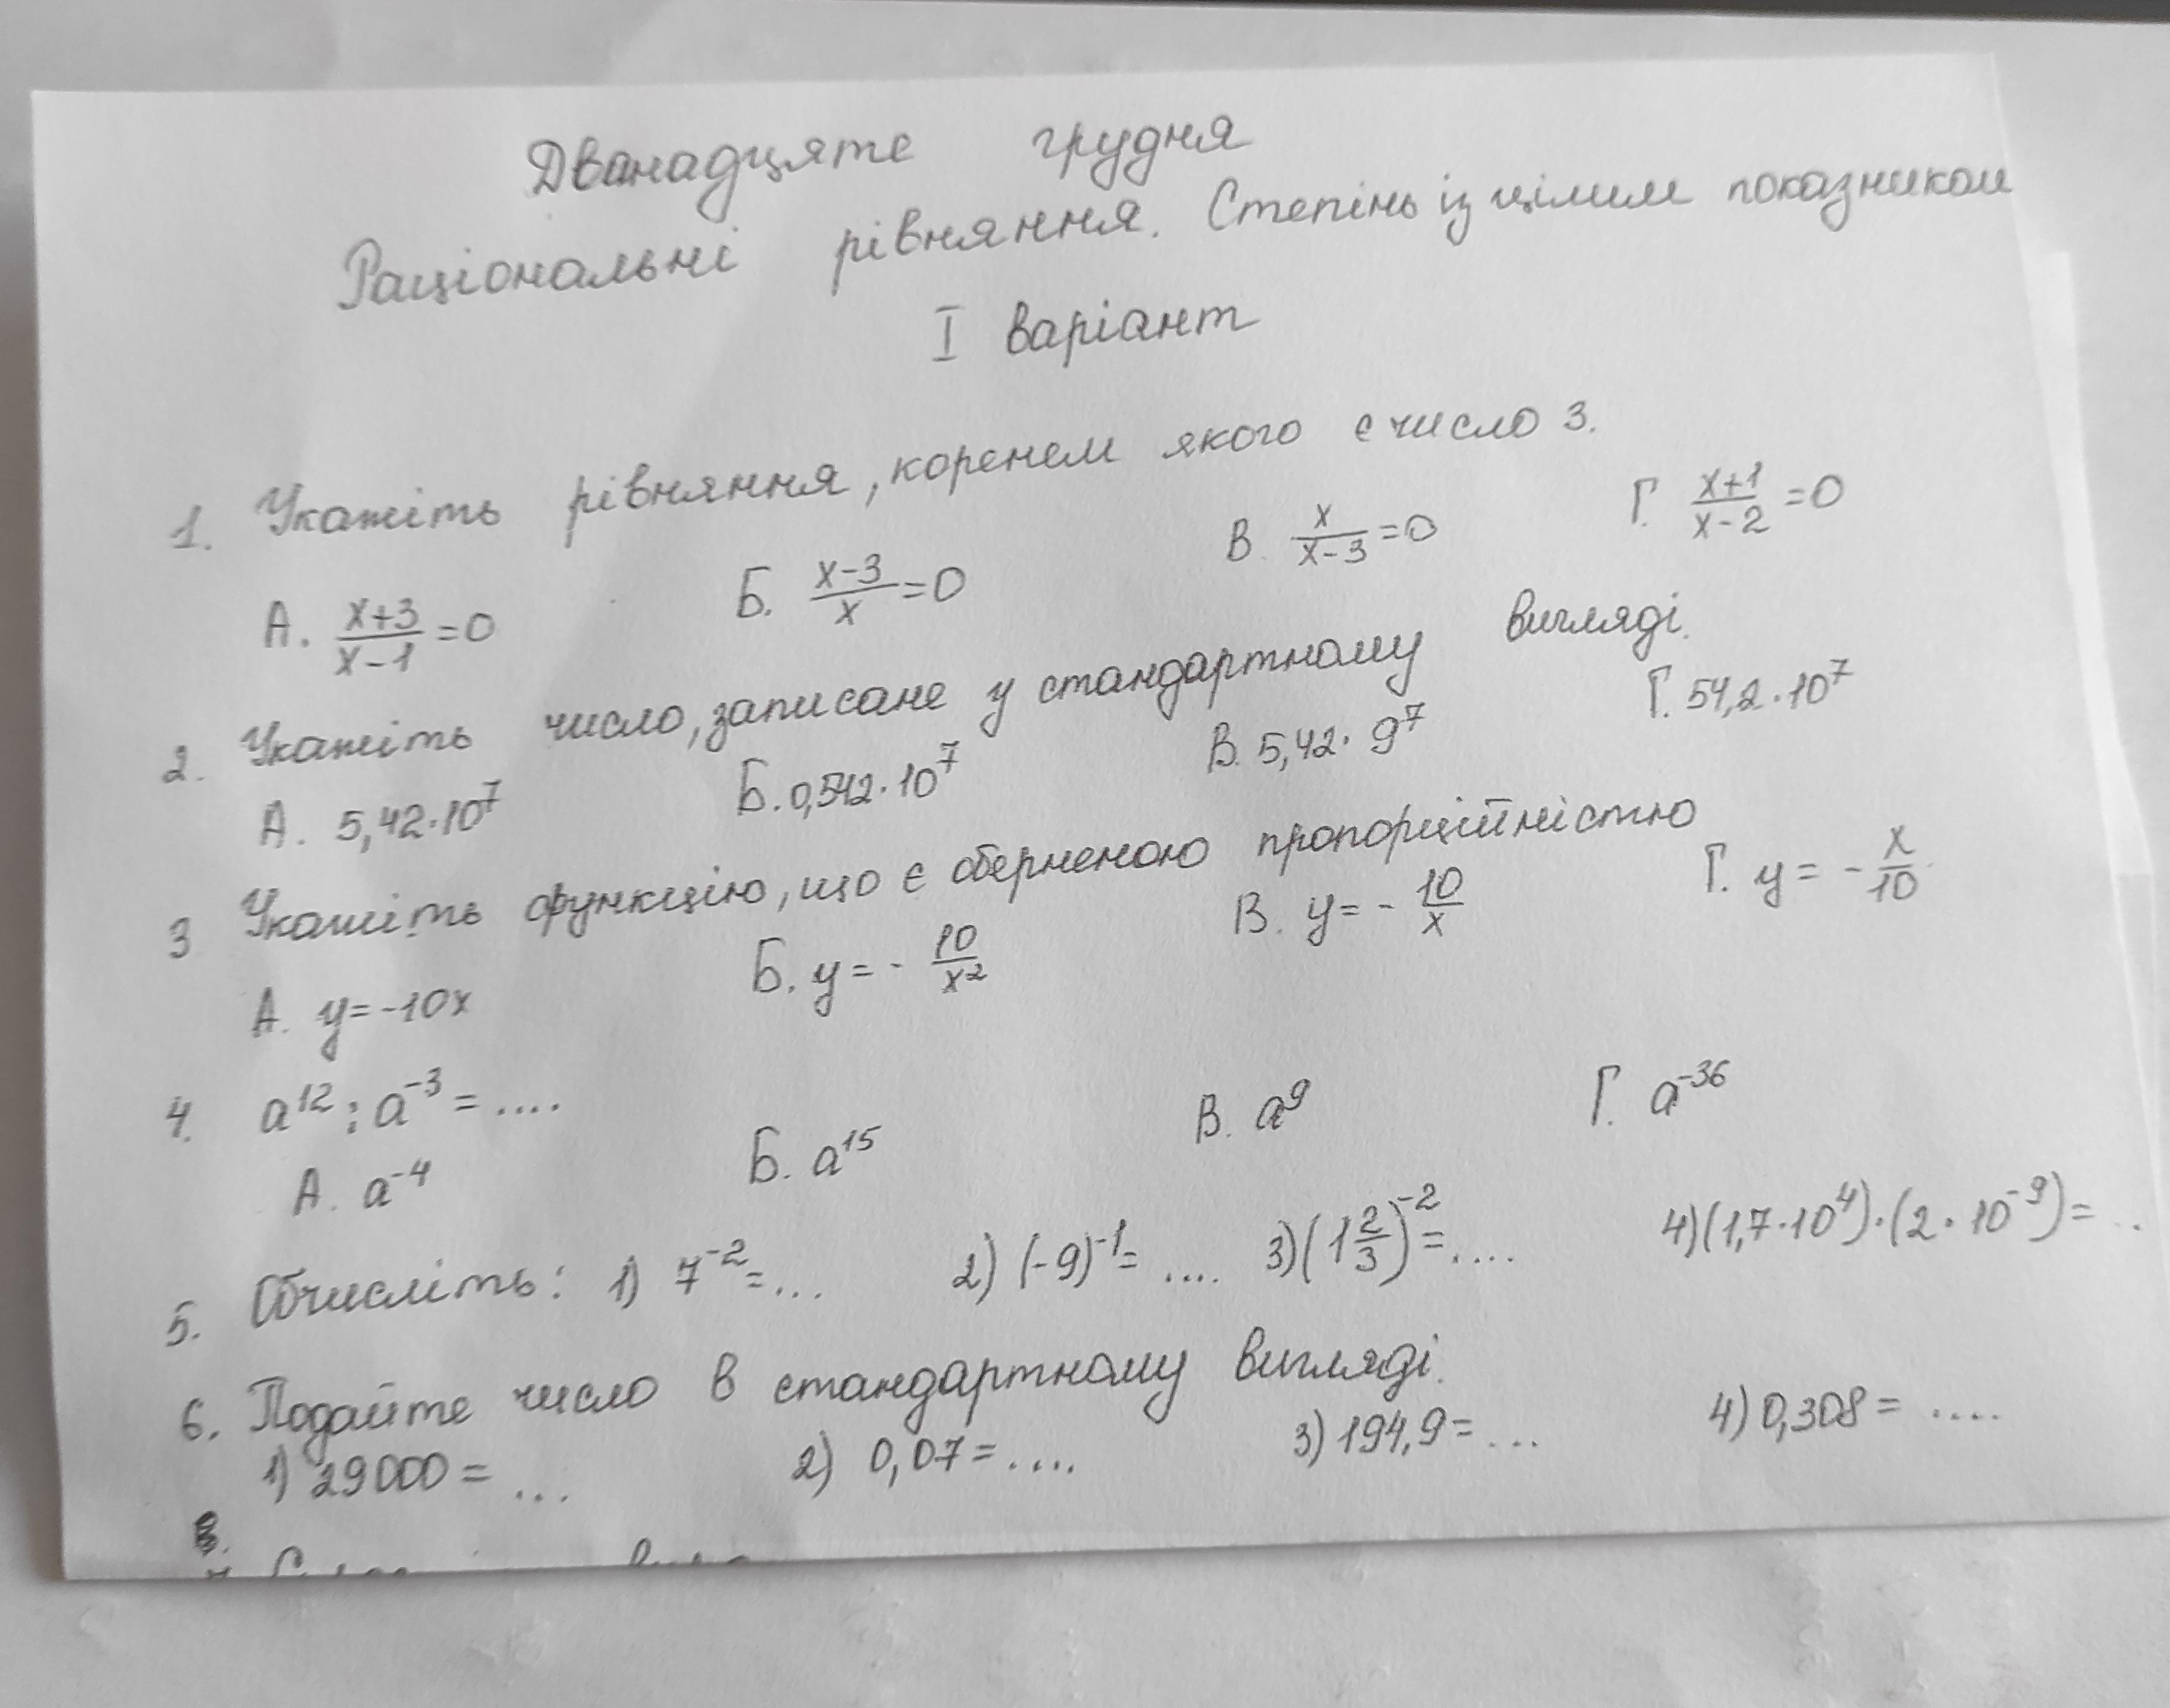 Дванадцяте грудня
Раціональні рівняння. Степінь із цілим показником
I варіант
1. Укажіть рівняння, коренем якого є число 3.
А. (x+3)/(x-1)=0 Б. (x-3)/x=0 В. x/(x-3)=0 Г. (x+1)/(x-2)=0
2. Укажіть число, записане у стандартному вигляді.
А. 5,42·10⁷ Б. 0,542·10⁷ В. 5,42·9⁷ Г. 54,2·10⁷
3 Укажіть функцію, що є оберненою пропорційністю
А. y=-10x Б. y=-10/x² В. y=-10/x Г. y=-x/10
4. a¹²:a⁻³=....
А. a⁻⁴ Б. a¹⁵ В. a⁹ Г. a⁻³⁶
5. Обчисліть: 1) 7⁻²=... 2) (-9)⁻¹=.... 3) (1 2/3)⁻²=.... 4) (1,7·10⁴)·(2·10⁻⁹)=..
6. Подайте число в стандартному вигляді.
1) 29000=... 2) 0,07=.... 3) 194,9=... 4) 0,308=....